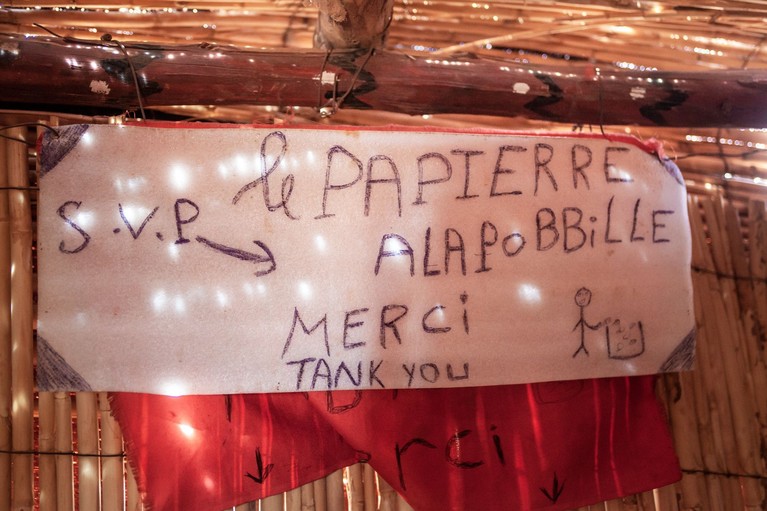 le PAPIERRE
S.V.P → ALAPOBBiLLE
MERCi
TANK YOU
rci